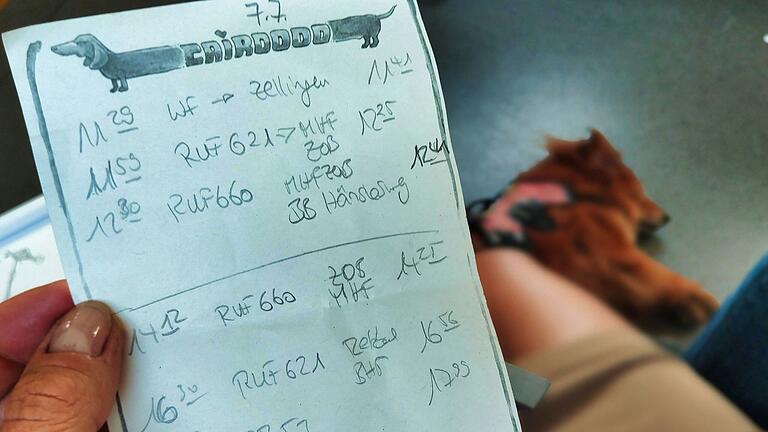 7.7.
CAIROOOO
11 29 WF → Zellingen 11 41
11 59 RUF 621 → MHF 12 25
ZOB
12 30 RUF 660 MHF ZOB 12 41
BB Hänslerung
14 12 RUF 660 ZOB 14 25
MHF
16 30 RUF 621 16 56
Bhf